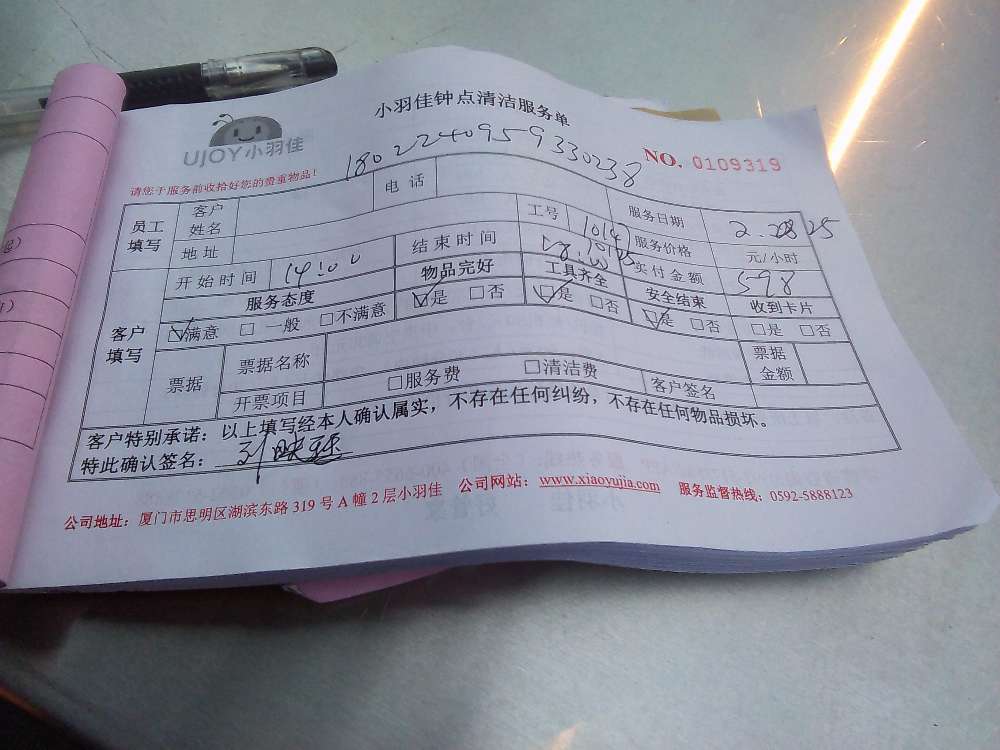 小羽佳钟点清洁服务单
UJOY小羽佳
NO. 0109319
1802240959330238
请您于服务前收拾好您的贵重物品！
员工填写 客户姓名 电话 服务日期
地址 工号 1014 服务价格 元/小时
开始时间 14:00 结束时间 18:00 实付金额 598
客户填写 服务态度 物品完好 工具齐全 安全结束 收到卡片
☑满意 □一般 □不满意 ☑是 □否 ☑是 □否 ☑是 □否 □是 □否
票据 票据名称 票据金额
开票项目 □服务费 □清洁费 客户签名
客户特别承诺：以上填写经本人确认属实，不存在任何纠纷，不存在任何物品损坏。
特此确认签名：
公司地址：厦门市思明区湖滨东路 319 号 A 幢 2 层小羽佳 公司网站：www.xiaoyujia.com 服务监督热线：0592-5888123